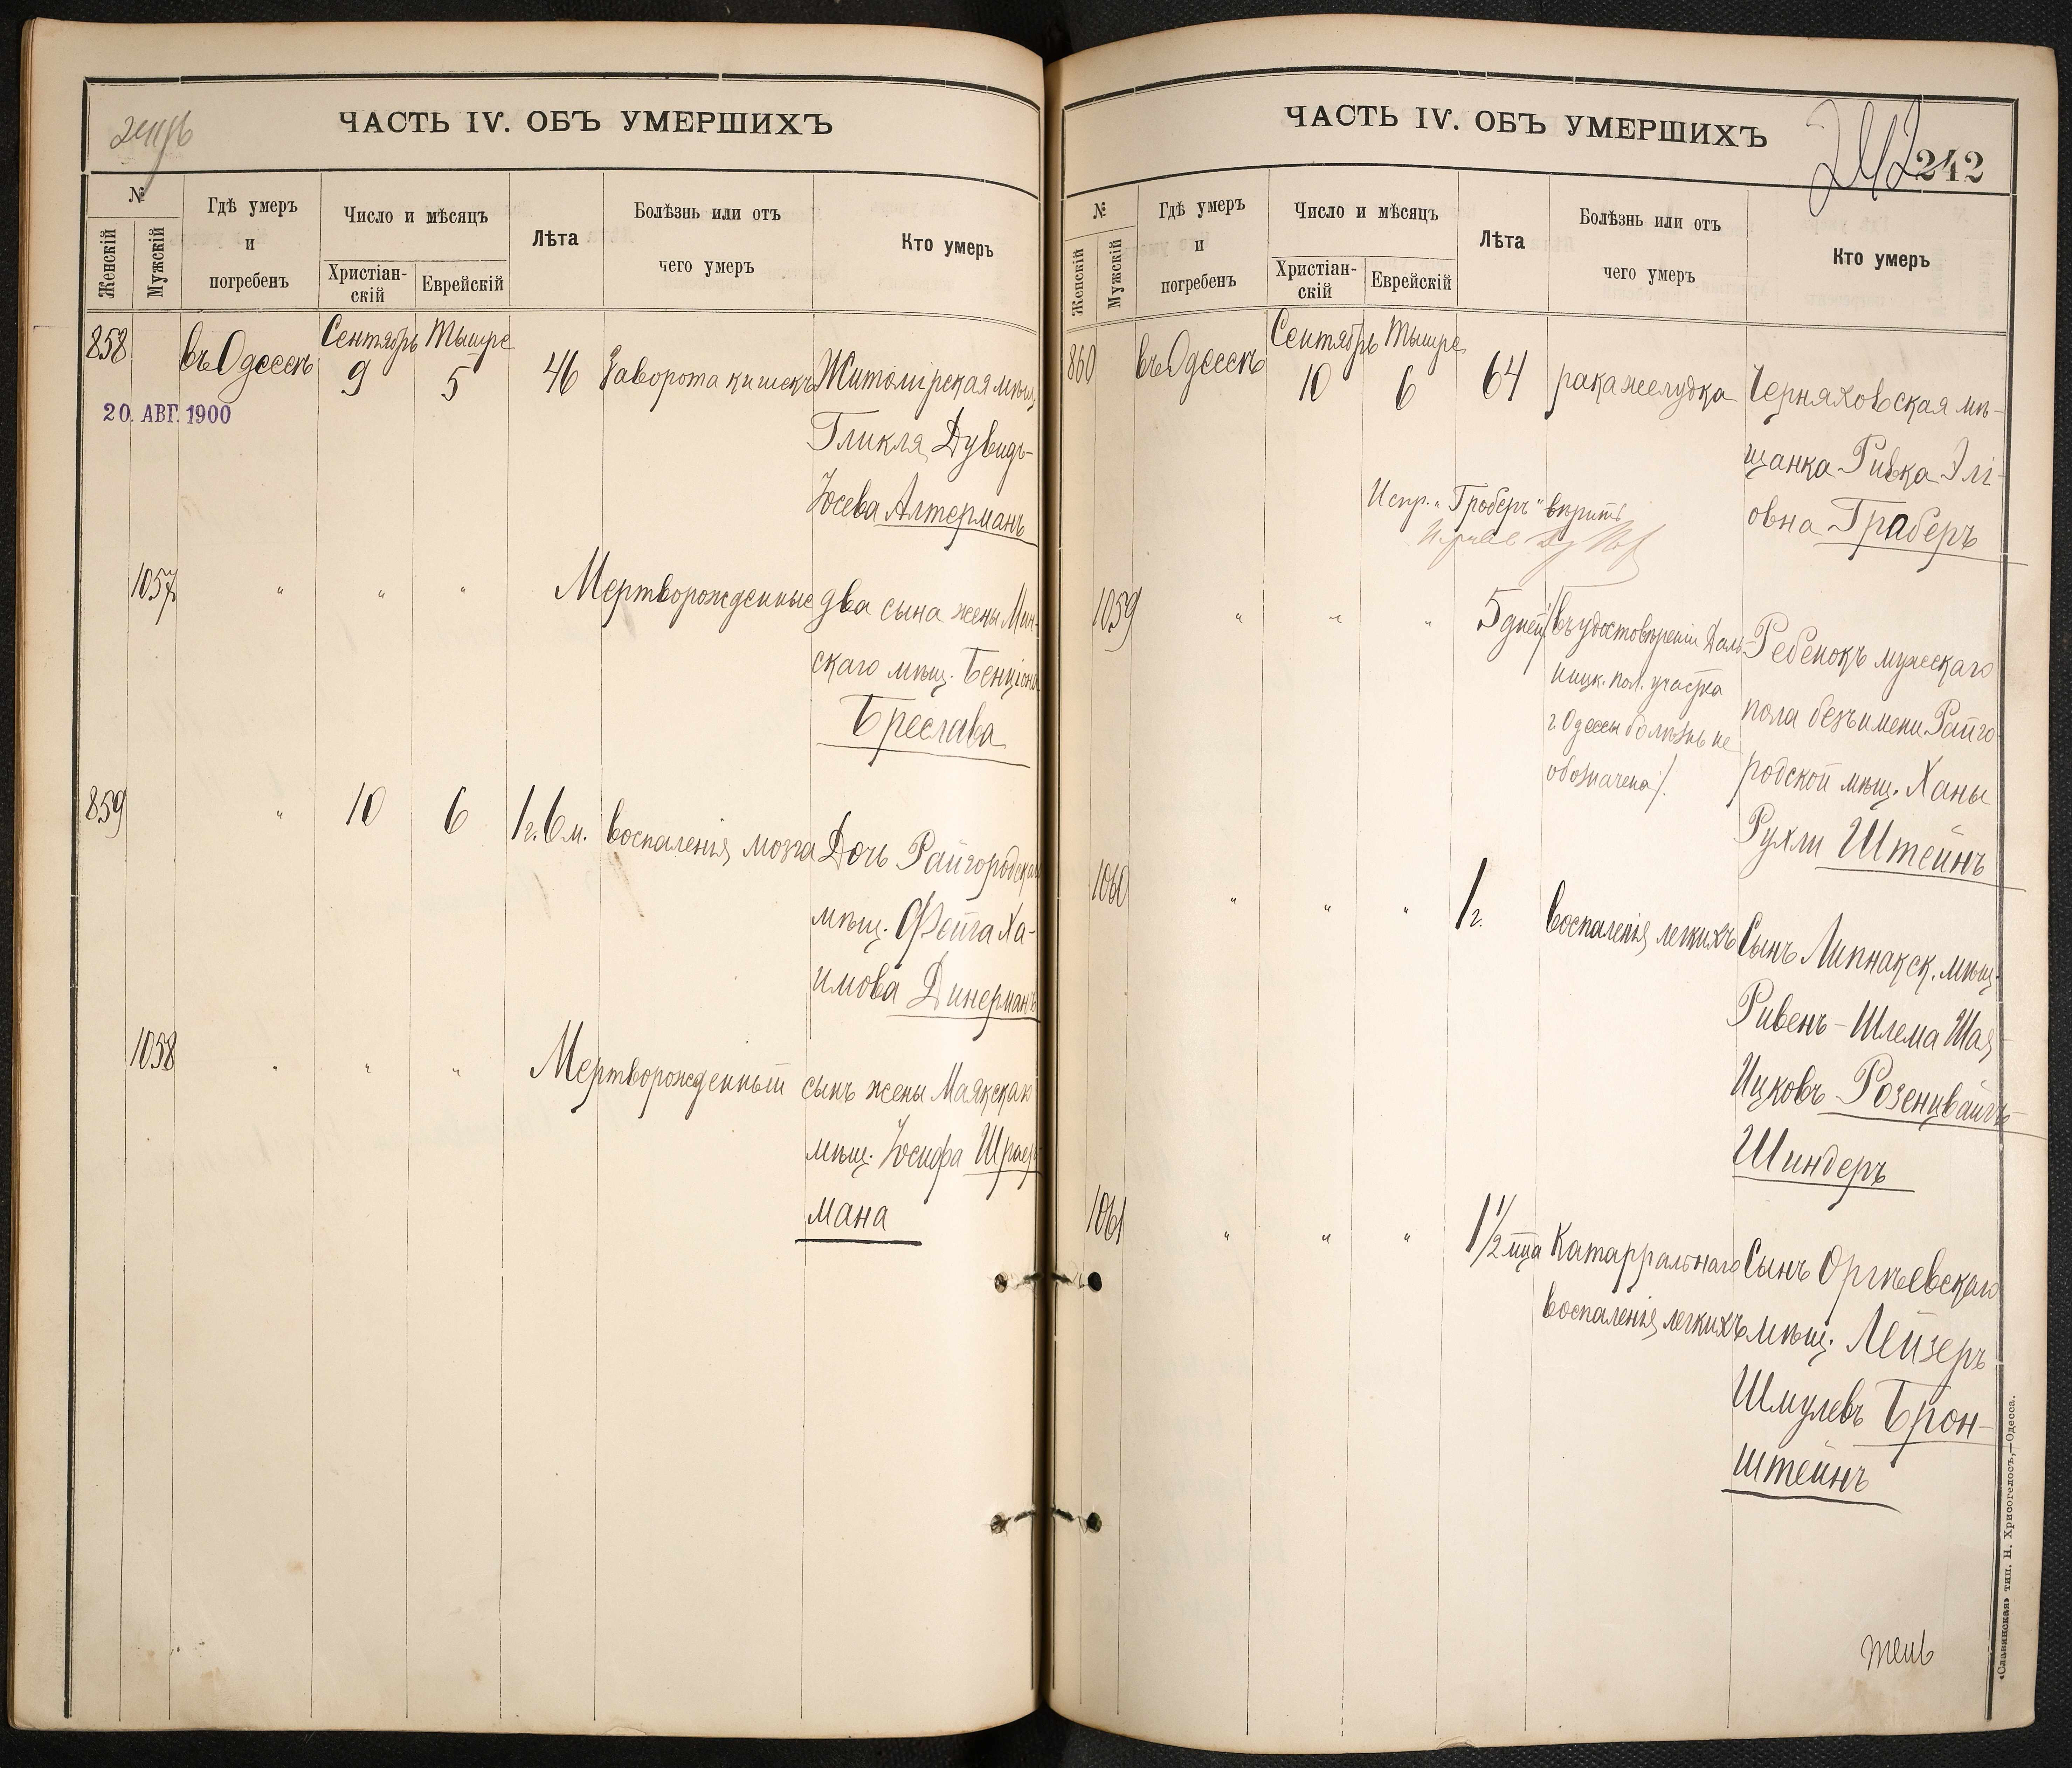 ЧАСТЬ IV. ОБЪ УМЕРШИХЪ
№
Женскій
Мужскій
Гдѣ умеръ
и
погребенъ
Число и мѣсяцъ
Христіан-
скій
Еврейскій
Лѣта
Болѣзнь или отъ
чего умеръ
Кто умеръ
858 въ Одессѣ Сентябрь 9 Тышре 5 46 Заворота кишекъ Житомірская мѣщ.
20. АВГ. 1900
Гликля Дувидъ-
Іосева Алтерманъ
1057 " " " Мертворожденные два сына жены Мин-
скаго мѣщ. Бенціона
Бреслава
859 " 10 6 1 г. 6 м. воспаленія мозга Дочь Райгородскаго
мѣщ. Фейга Ха-
имова Динерманъ
1058 " " " Мертворожденный сынъ жены Маякскаго
мѣщ. Іосифа
мана
ЧАСТЬ IV. ОБЪ УМЕРШИХЪ
242
242
№
Женскій
Мужскій
Гдѣ умеръ
и
погребенъ
Число и мѣсяцъ
Христіан-
скій
Еврейскій
Лѣта
Болѣзнь или отъ
чего умеръ
Кто умеръ
860 въ Одессѣ Сентябрь 10 Тышре 6 64 рака желудка Черняховская мѣ-
щанка Ривка Элі-
овна Граберъ
Испр. „Гроберъ" вѣрить
1059 " " " 5 дней /въ удостовѣреніи Даль- Ребенокъ мужескаго
ницк. пол. участка пола безъ имени Райго-
г Одессы болѣзнь не родской мѣщ. Ханы
обозначена/. Рухли Штейнъ
1060 " " " 1 г. воспаленія легкихъ Сынъ Липнакск. мѣщ.
Ривенъ-Шлема Шая
Ицковъ Розенцвайгъ
Шиндеръ
1061 " " " 1 1/2 мца Катарральнаго Сынъ Оргѣевскаго
воспаленія легкихъ мѣщ. Лейзеръ
Шмулевъ Брон-
штейнъ
«Славянская» тип. Н. Хрисогелосъ,—Одесса.